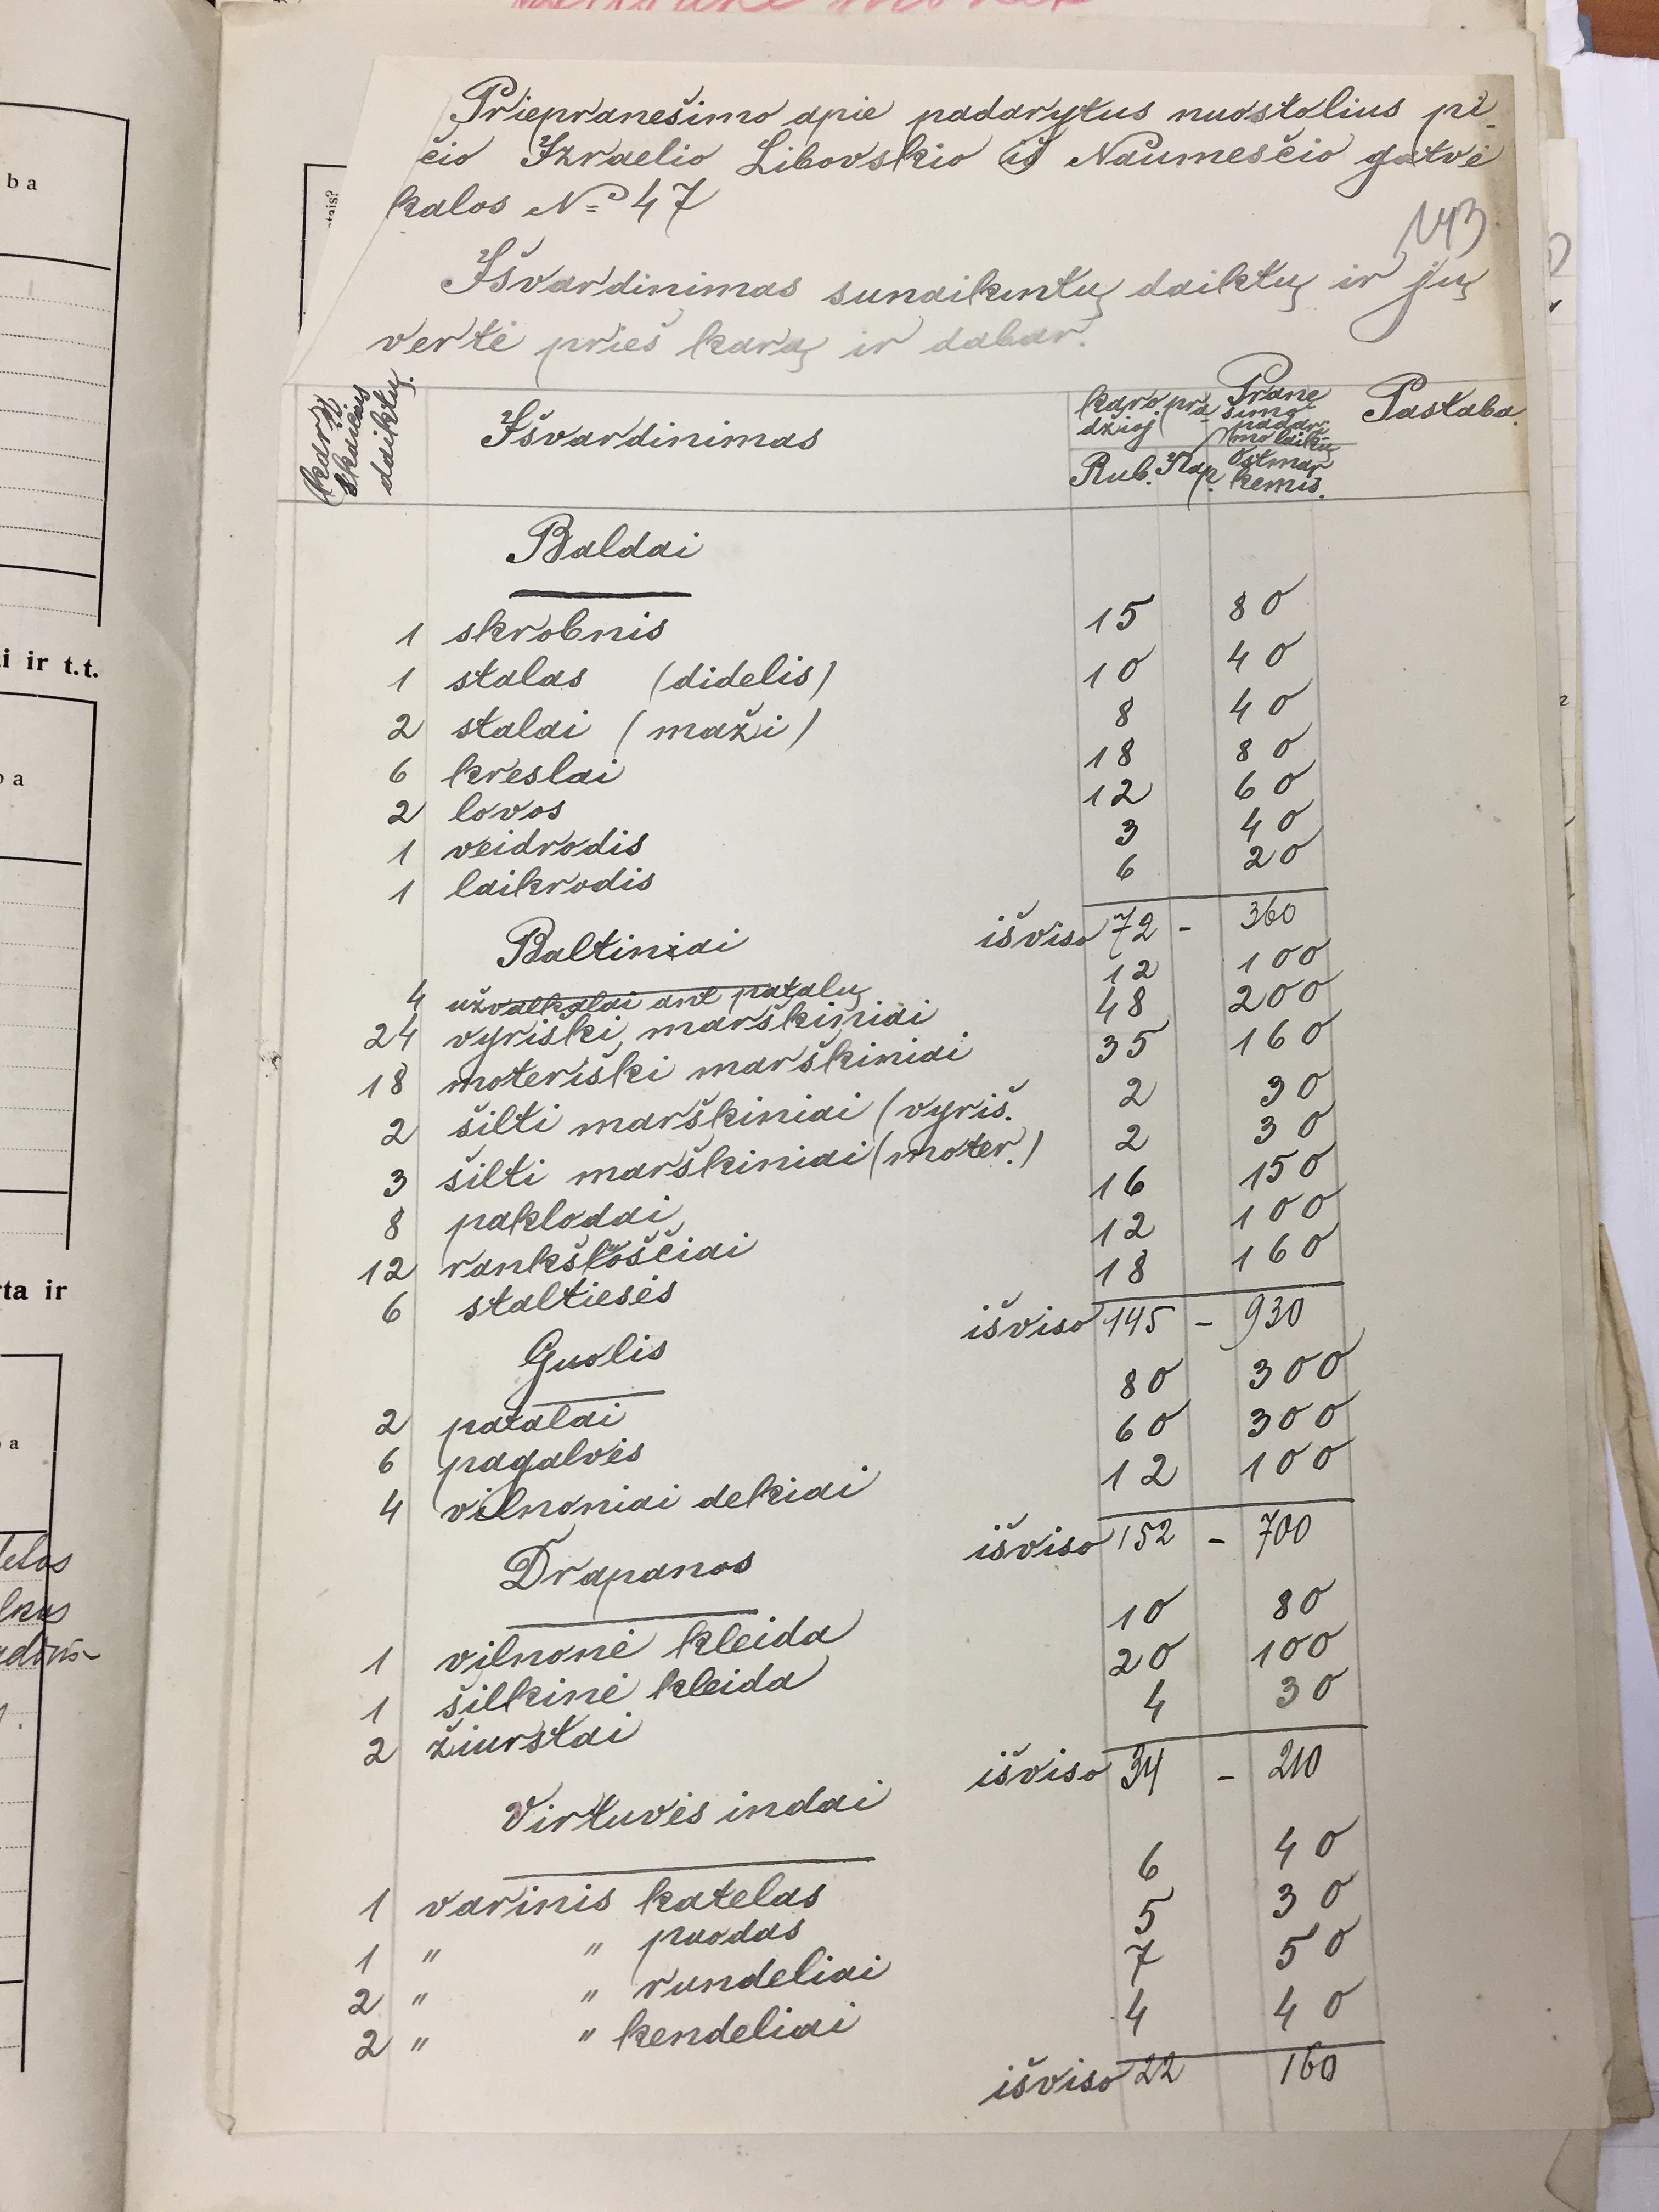 Priepranešimo apie padarytus nuostolius pi-
čio Izraelio Libovskio iš Naumesčio gatvė
kalos № 47
143
Išvardinimas sunaikintų daiktų ir jų
vertė prieš karą ir dabar.
skaičius daiktų. Išvardinimas karo pra džioj Prane šimo padari- mo laiku Pastaba.
Rub. Kap. Ostmar kemis.
Baldai
1 skrobnis 15 80
1 stalas (didelis) 10 40
2 stalai (maži) 8 40
6 kreslai 18 80
2 lovos 12 60
1 veidrodis 3 40
1 laikrodis 6 20
išviso 72 - 360
Baltiniai
4 užvalkalai ant patalų 12 100
24 vyriški marškiniai 48 200
18 moteriški marškiniai 35 160
2 šilti marškiniai (vyriš. 2 30
3 šilti marškiniai (moter.) 2 30
8 paklodai 16 150
12 rankšłoščiai 12 100
6 staltiesės 18 160
išviso 145 - 930
Guolis
2 patalai 80 300
6 pagalvės 60 300
4 vilnoniai dekiai 12 100
išviso 152 - 700
Drapanos
1 vilnonė kleida 10 80
1 šilkinė kleida 20 100
2 žiurstai 4 30
išviso 34 - 210
Virtuvės indai
1 varinis katelas 6 40
1 " " puodas 5 30
2 " " rundeliai 7 50
2 " " kendeliai 4 40
išviso 22 160
ba
i ir t.t.
rta ir